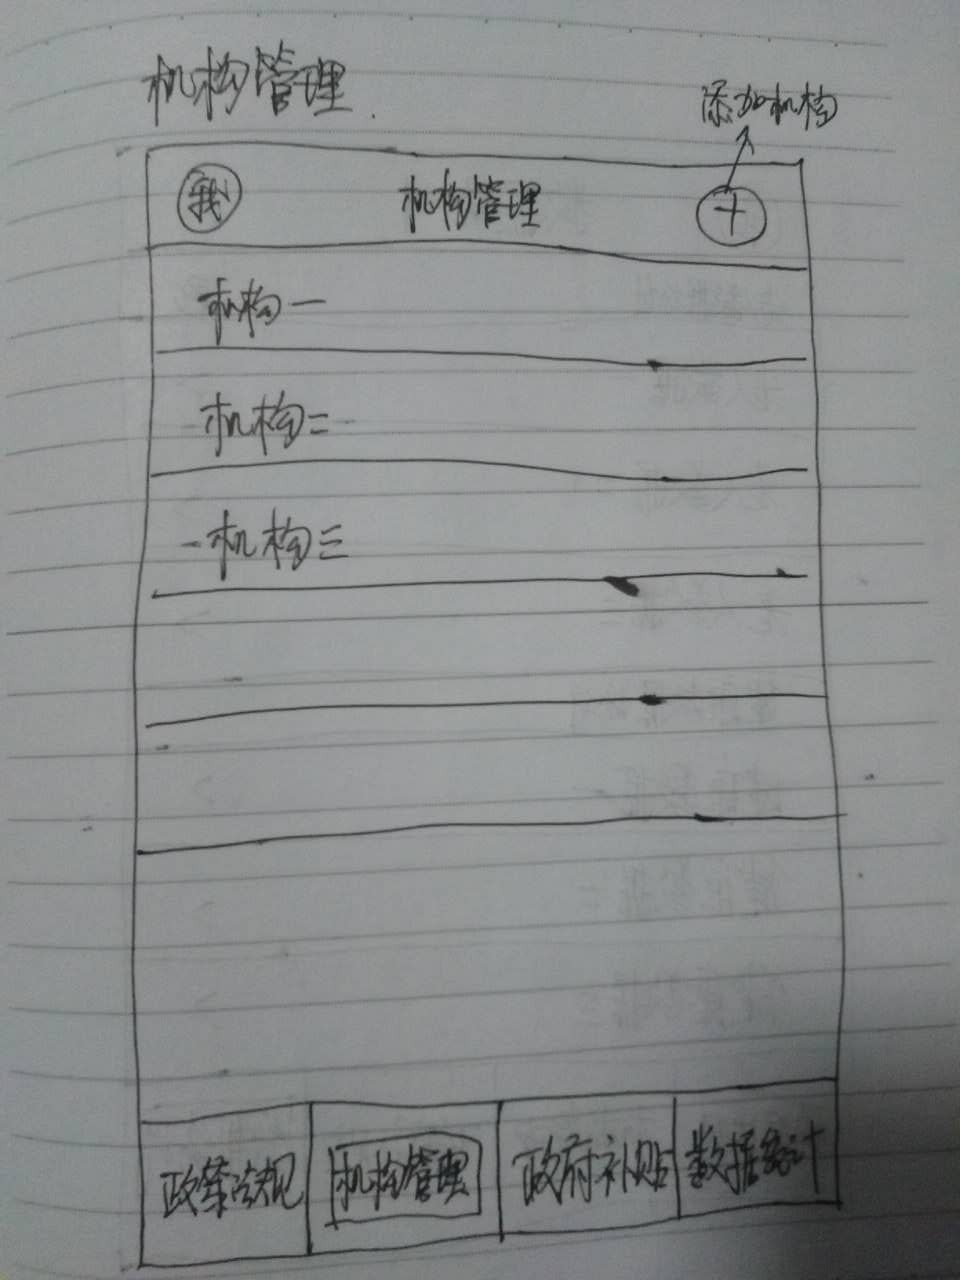 机构管理
添加机构
我 机构管理 +
机构一
机构二
机构三
政策法规 机构管理 政府补贴 数据统计